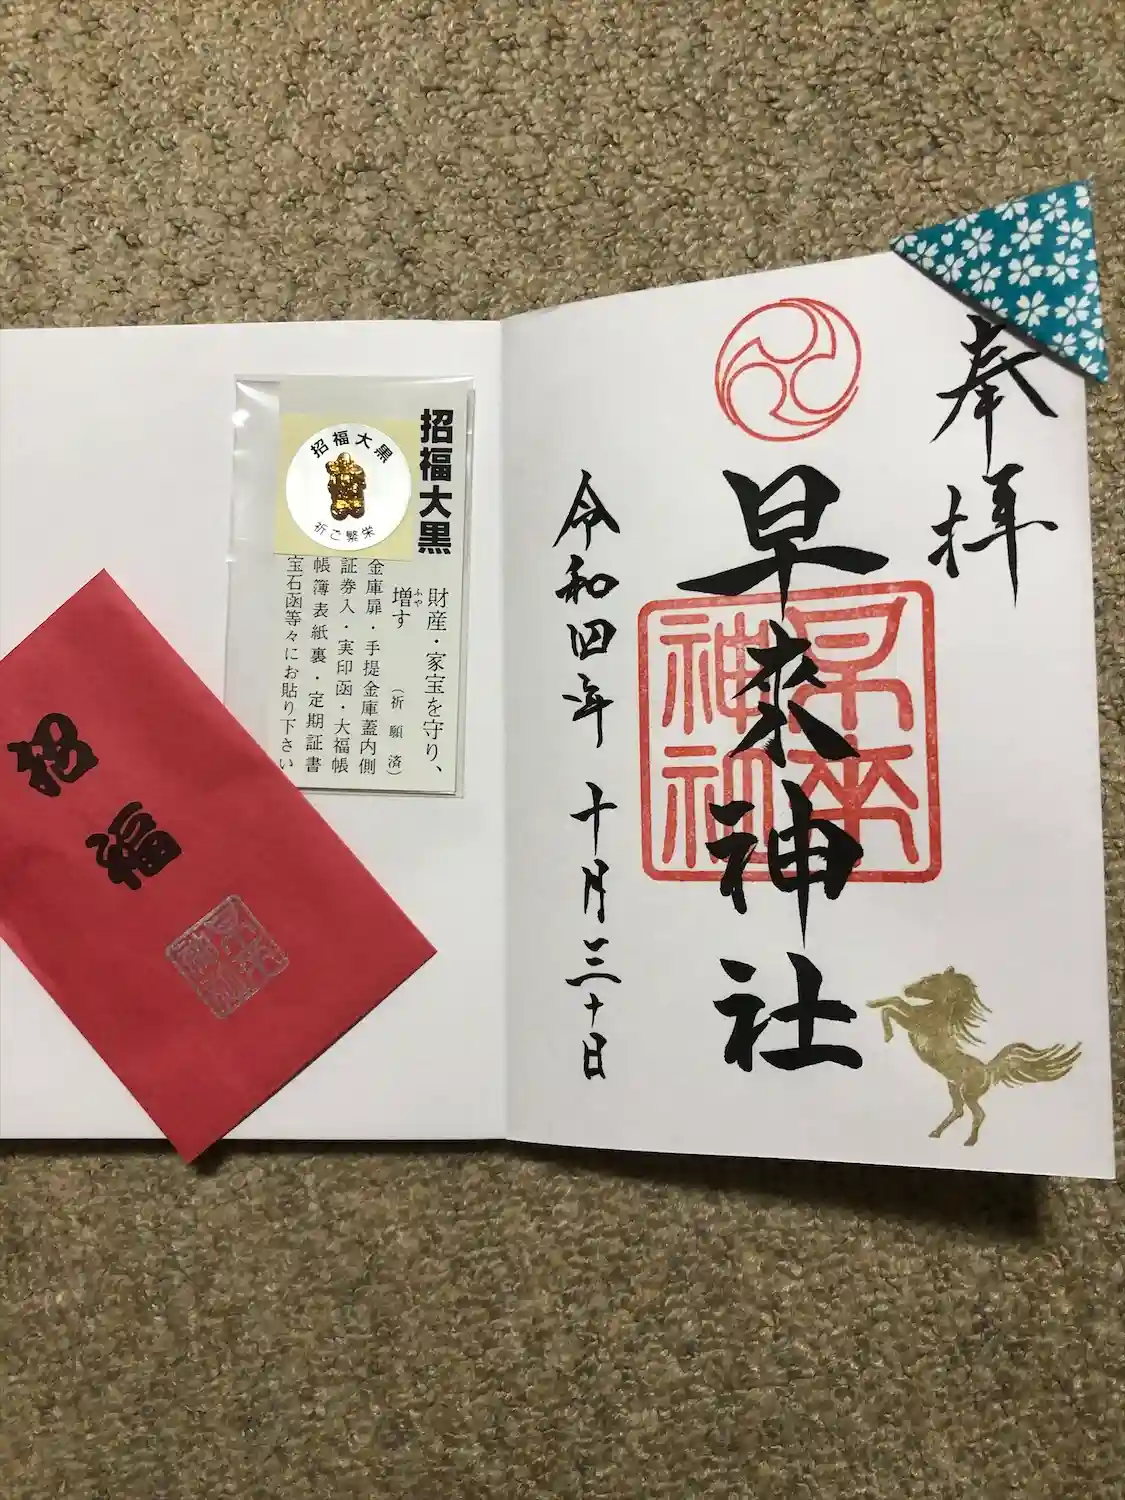 奉拝
早来神社
早来神社
令和四年 十月三十日
招福大黒
招福大黒
祈ご繁栄
財産・家宝を守り、
増す（祈願済）
ふや
金庫扉・手提金庫蓋内側
証券入・実印函・大福帳
帳簿表紙裏・定期証書
宝石函等々にお貼り下さい
招福
早来神社